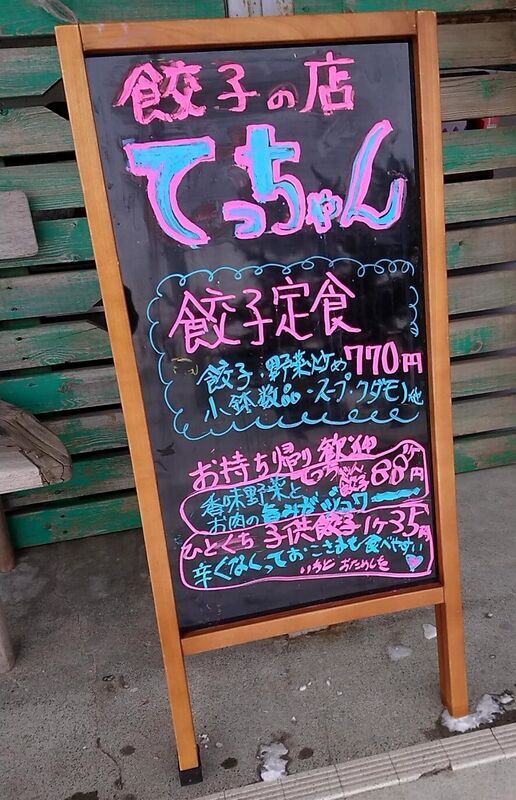 餃子の店
てっちゃん
餃子定食
餃子・野菜炒め 770円
小鉢数品・スープ・クダモノ他
お持ち帰り歓迎
てっちゃん餃子 1ケ 88円
香味野菜と
お肉の旨みがジュワー
ひとくち 子供餃子 1ケ35円
辛くなくっておこさまも食べやすい
いちど おためしを